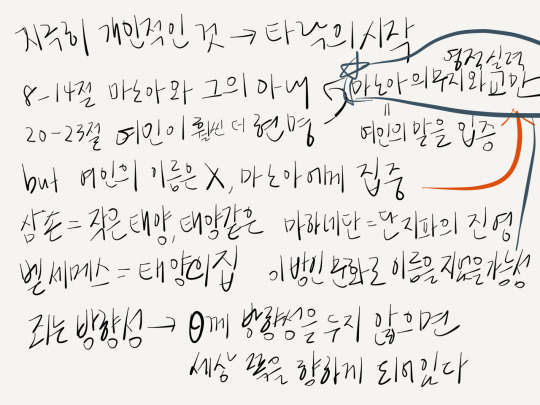 지극히 개인적인 것 → 타락의 시작
영적실력
8-14절 마노아와 그의 아내
마노아의 무지와 교만
20-23절 여인이 훨씬 더 현명
=
여인의 말을 입증
but 여인의 이름은 X, 마노아에게 집중
삼손 = 작은태양, 태양같은 마하네단=단지파의 진영
벧세메스 = 태양의 집 이방인 문화로 이름을 지었을 가능성
죄는 방향성 → θ께 방향성을 두지 않으면
세상 쪽을 향하게 되어있다